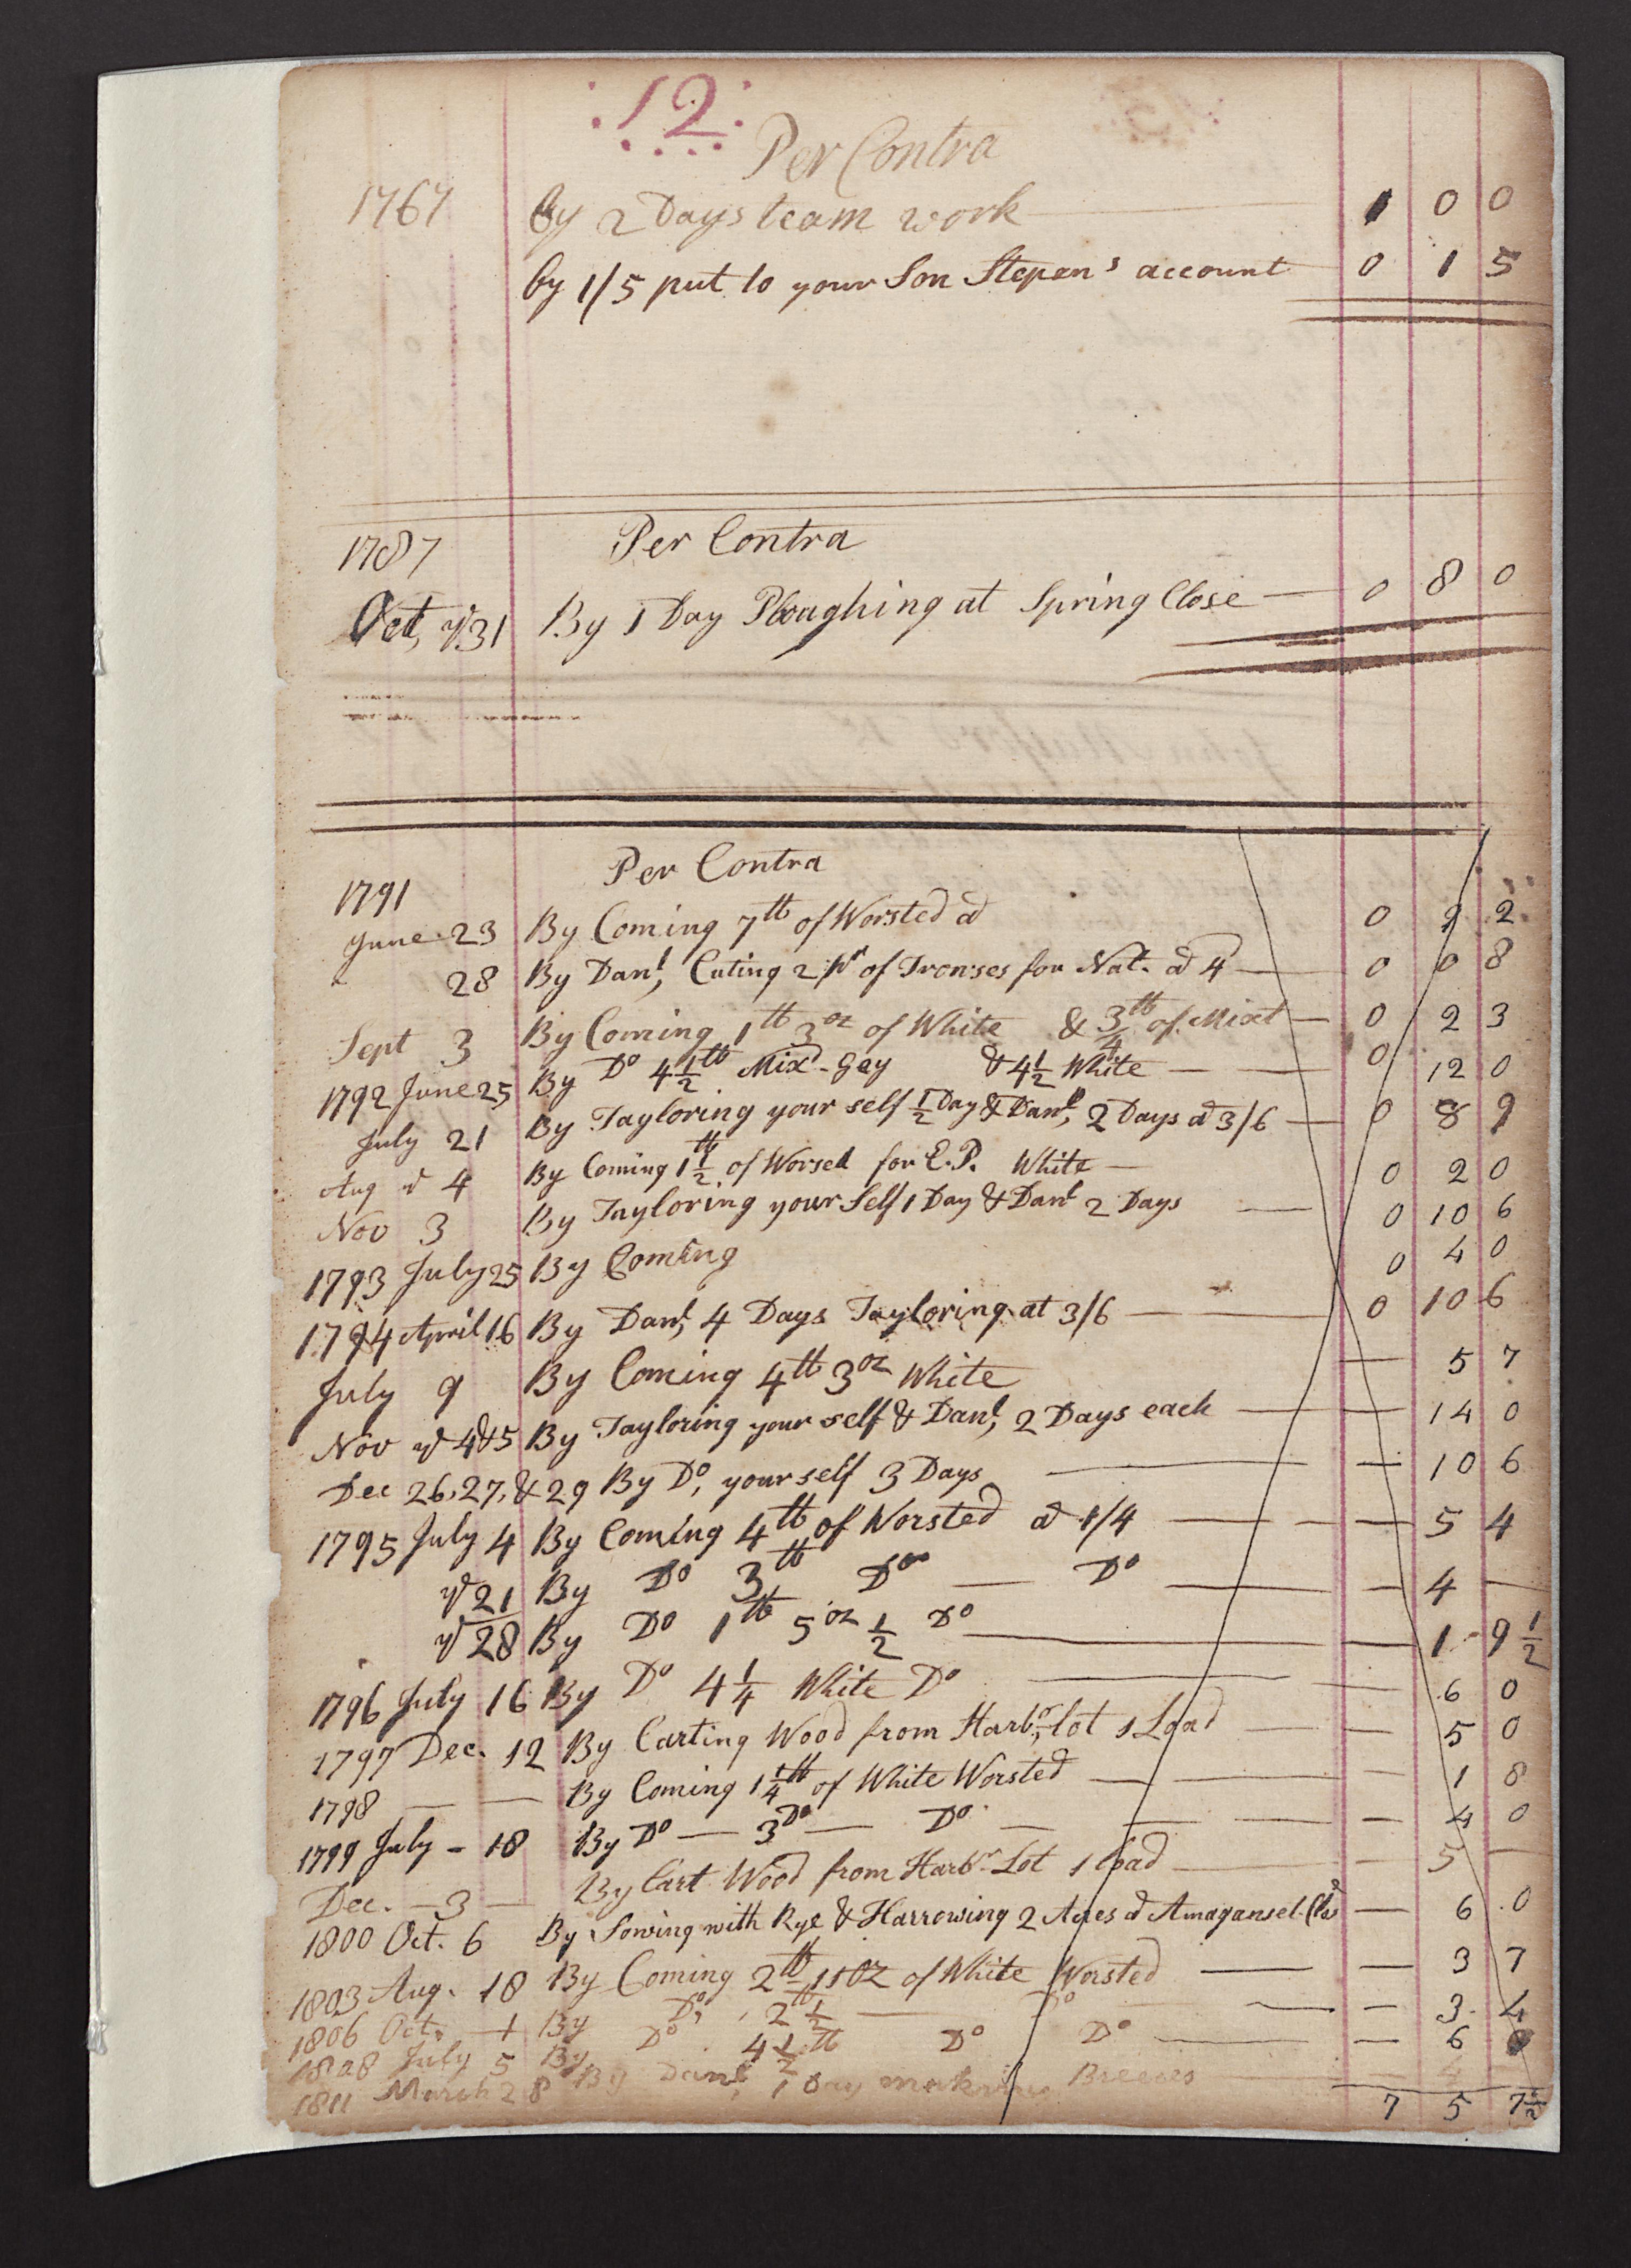 12
Per Contra
1767 by 2 Days team work 1 0 0
by 1/5 put to your Son Stepen's account 0 1 5
1787 Per Contra
Oct, ye 31 By 1 Day Ploughing at Spring Close 0 8 0
Per Contra
1791
June 23 By Coming 7 lb of Worsted a 0 9 2
28 By Danl, Cuting 2 pr of Trowses for Nat. a 4 0 0 8
Sept 3 By Coming 1 lb 3 oz of White & 3/4 lb of Mixt 0 2 3
1792 June 25 By Do 4 1/2 lb Mixd Gey & 4 1/2 White 0 12 0
July 21 By Tayloring your self 1/2 Day & Danl, 2 Days a 3/6 0 8 9
Aug ye 4 By Coming 1 1/2 lb of Worsed for E.P. White 0 2 0
Nov 3 By Tayloring your Self 1 Day & Danl 2 Days 0 10 6
1793 July 25 By Coming 0 4 0
1794 April 16 By Danl, 4 Days Tayloring at 3/6 0 10 6
July 9 By Coming 4 lb 3 oz White — 5 7
Nov ye 4 & 5 By Tayloring your self & Danl, 2 Days each — 14 0
Dec 26, 27, & 29 By Do, your self 3 Days — 10 6
1795 July 4 By Coming 4 lb of Worsted a 1/4 — 5 4
ye 21 By Do 3 lb Do — Do — 4 —
ye 28 By Do 1 lb 5 oz 1/2 Do — 1 9 1/2
1796 July 16 By Do 4 1/4 White Do — 6 0
1797 Dec. 12 By Carting Wood from Harbr, lot 1 Load — 5 0
1798 — — By Coming 1 1/4 lb of White Worsted — 1 8
1799 July - 18 By Do — 3 Do — Do — 4 0
Dec. — 3 — By Cart Wood from Harbr Lot 1 load — 5 —
1800 Oct. 6 By Sowing with Rye & Harrowing 2 Acres a Amaganset Clos — 6 0
1803 Aug. 18 By Coming 2 lb 11 oz of White Worsted — 3 7
1806 Oct. 1 By Do, 2 1/2 lb — Do — 3 4
1808 July 5 By Do 4 1/2 lb Do Do — 6 0
1811 March 28 By Danl, 1 Day making Breeces — 4
7 5 7 1/2